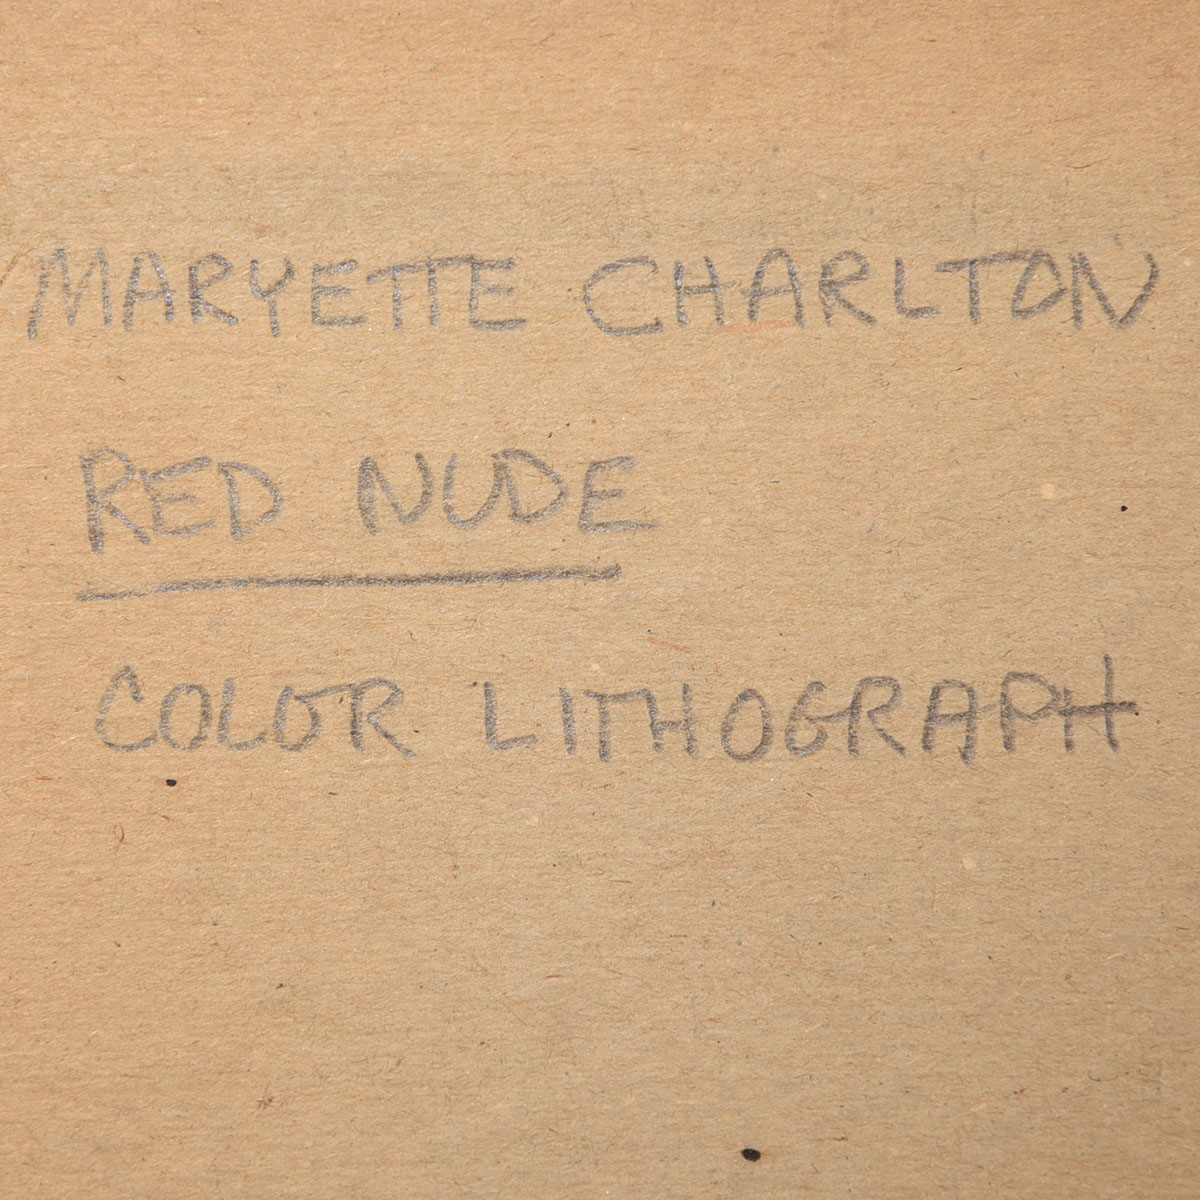 MARYETTE CHARLTON
RED NUDE
COLOR LITHOGRAPH